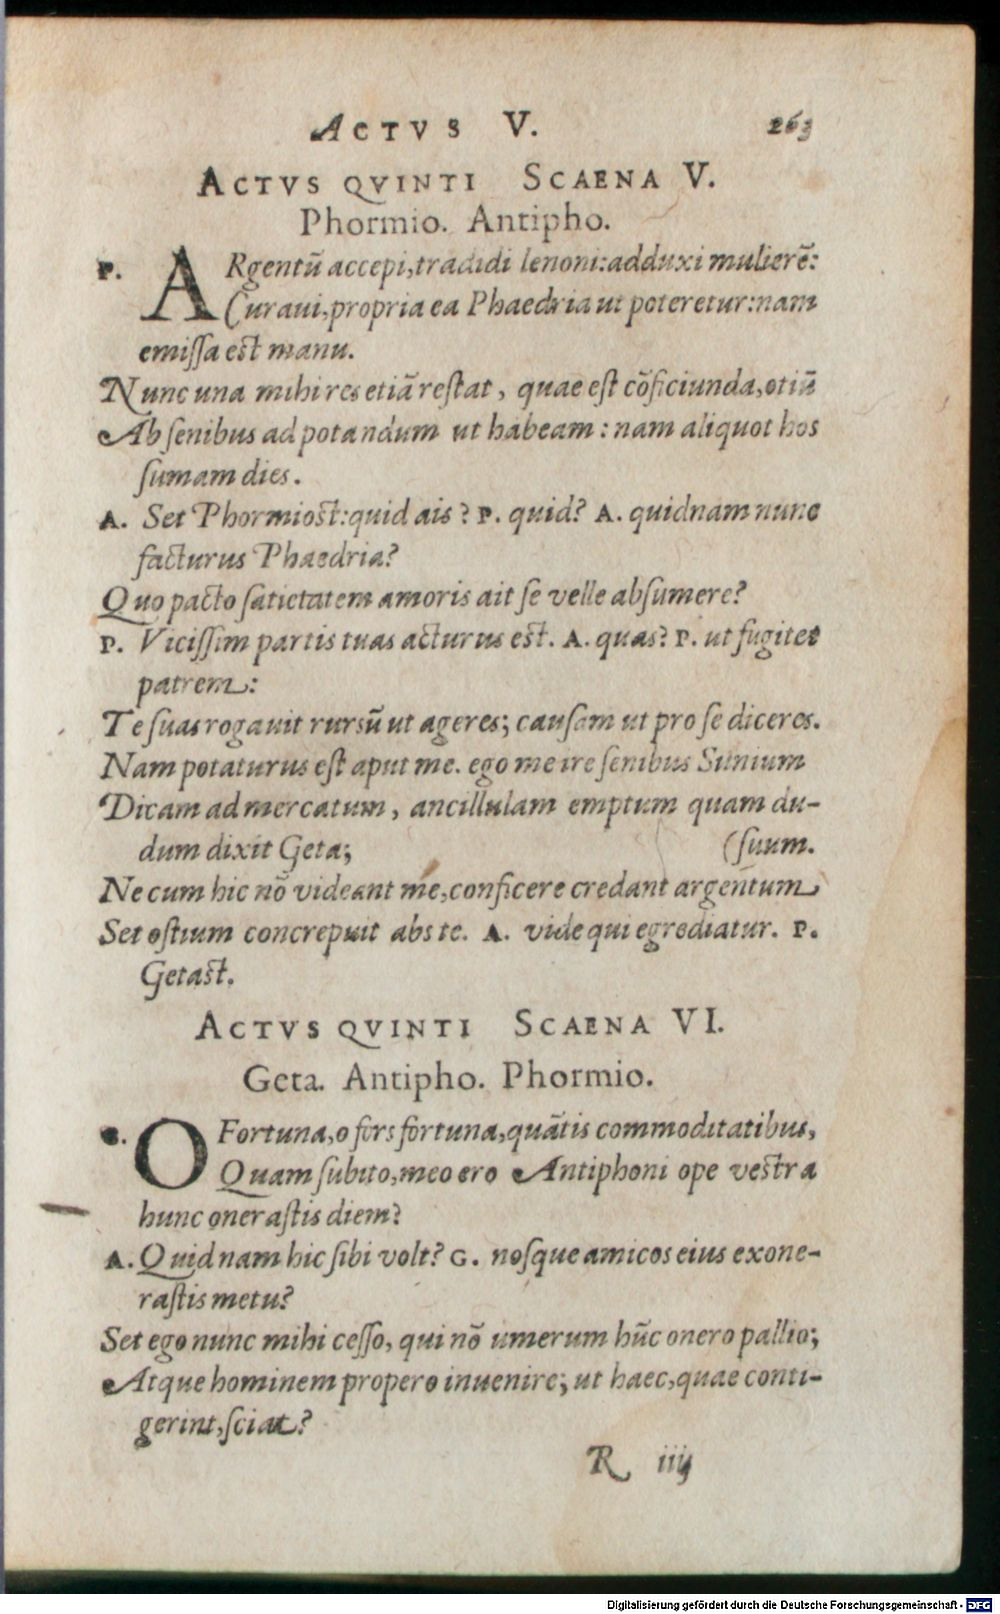 ACTVS V. 263
ACTVS QVINTI SCAENA V.
Phormio. Antipho.
P. ARgentū accepi, tradidi lenoni: adduxi mulierē:
Curaui, propria ea Phaedria ut poteretur: nam
emissa est manu.
Nunc una mihi res etiā restat, quae est cōficiunda, otiū
Ab senibus ad potandum ut habeam: nam aliquot hos
sumam dies.
A. Set Phormiost: quid ais? P. quid? A. quidnam nunc
facturus Phaedria?
Quo pacto satietatem amoris ait se velle absumere?
P. Vicissim partis tuas acturus est. A. quas? P. ut fugitet
patrem:
Te suas rogauit rursū ut ageres; causam ut pro se diceres.
Nam potaturus est aput me. ego me ire senibus Sunium
Dicam ad mercatum, ancillulam emptum quam du-
dum dixit Geta; (suum.
Ne cum hic nō videant me, conficere credant argentum
Set ostium concrepuit abs te. A. vide qui egrediatur. P.
Getast.
ACTVS QVINTI SCAENA VI.
Geta. Antipho. Phormio.
G. O Fortuna, o fors fortuna, quātis commoditatibus,
Quam subito, meo ero Antiphoni ope vestra
hunc onerastis diem?
A. Quid nam hic sibi volt? G. nosque amicos eius exone-
rastis metu?
Set ego nunc mihi cesso, qui nō umerum hūc onero pallio;
Atque hominem propero inuenire; ut haec, quae conti-
gerint, sciat?
R iiij
Digitalisierung gefördert durch die Deutsche Forschungsgemeinschaft - DFG